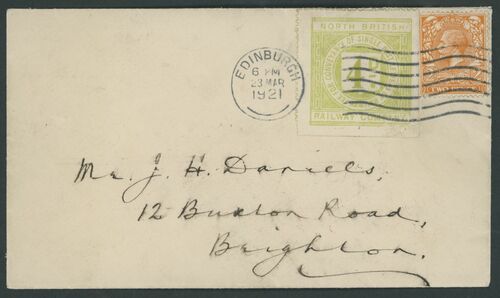 NORTH BRITISH
FOR CONVEYANCE OF SINGLE
RAILWAY
EDINBURGH
6 PM
23 MAR
1921
Mr. J. H. Daniels,
12 Buxton Road,
Brighton.